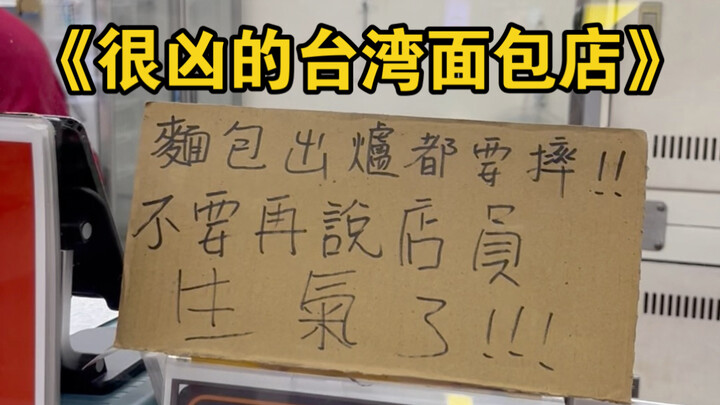 《很凶的台湾面包店》
麵包出爐都要摔!!
不要再說店員
生氣了!!!